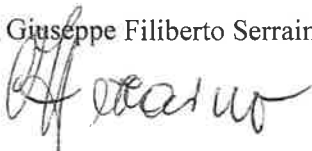 Giuseppe Filiberto Serrain